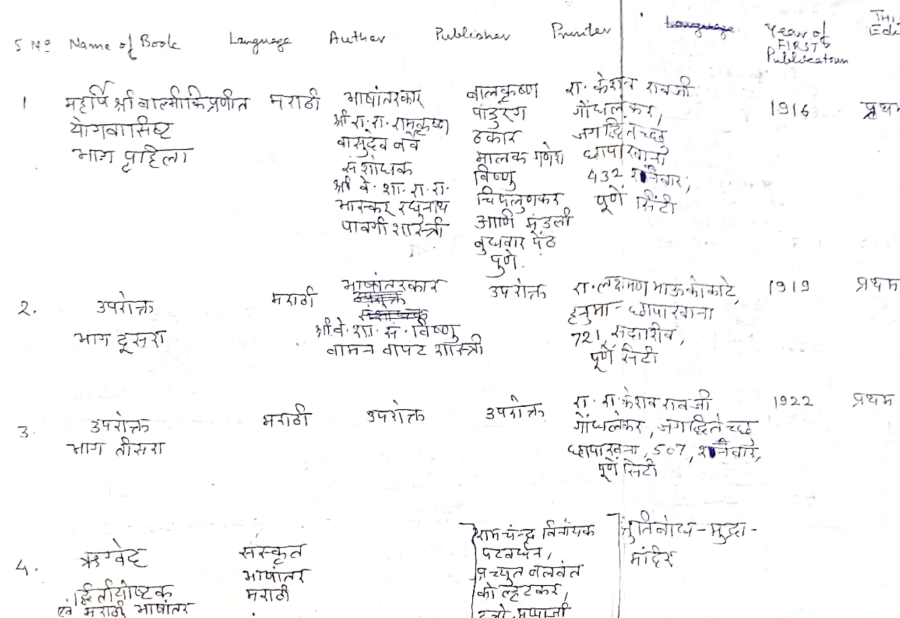 S Nº Name of Book Language Author Publisher Printer Language Year of FIRST Publication
1 महर्षि श्री वाल्मीकि प्रणीत मराठी भाषांतरकार बालकृष्ण रा. केशव रावजी 1916 प्रथम
योगवासिष्ट श्री.रा.रा. रामकृष्ण पांडुरंग गोंधलेकर,
भाग पहिला वासुदेव बर्वे ठकार जगद्धितेच्छु
संशोधक मालक गणेश छापाखाना
श्री वे. शा. रा. रा. विष्णु 432 शनिवार,
भास्कर रघुनाथ चिपलुणकर पूणें सिटी
पावगी शास्त्री आणि मंडली
बुधवार पेठ
पुणे.
2. उपरोक्त मराठी भाषांतरकार उपरोक्त रा. लक्ष्मण भाऊ कोकाटे, 1919 प्रथम
भाग दूसरा श्री.वे. शा. सं. विष्णु हनुमान छापाखाना
वामन बापट शास्त्री 721, सदाशीव,
पूणें सिटी
3. उपरोक्त मराठी उपरोक्त उपरोक्त रा. रा. केशव रावजी 1922 प्रथम
भाग तीसरा गोंधलेकर, जगद्धितेच्छु
छापाखाना, 507, शनिवार,
पूणें सिटी
4. ऋग्वेद संस्कृत रामचंन्द्र विनायक
द्वितीयोष्टक भाषांतर पटवर्धन, मंदिर
एवं मराठी भाषांतर मराठी अच्युत बलवंत
कोल्हटकर,